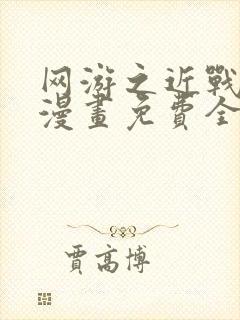 网游之近戰
漫畫免費全
賈高博